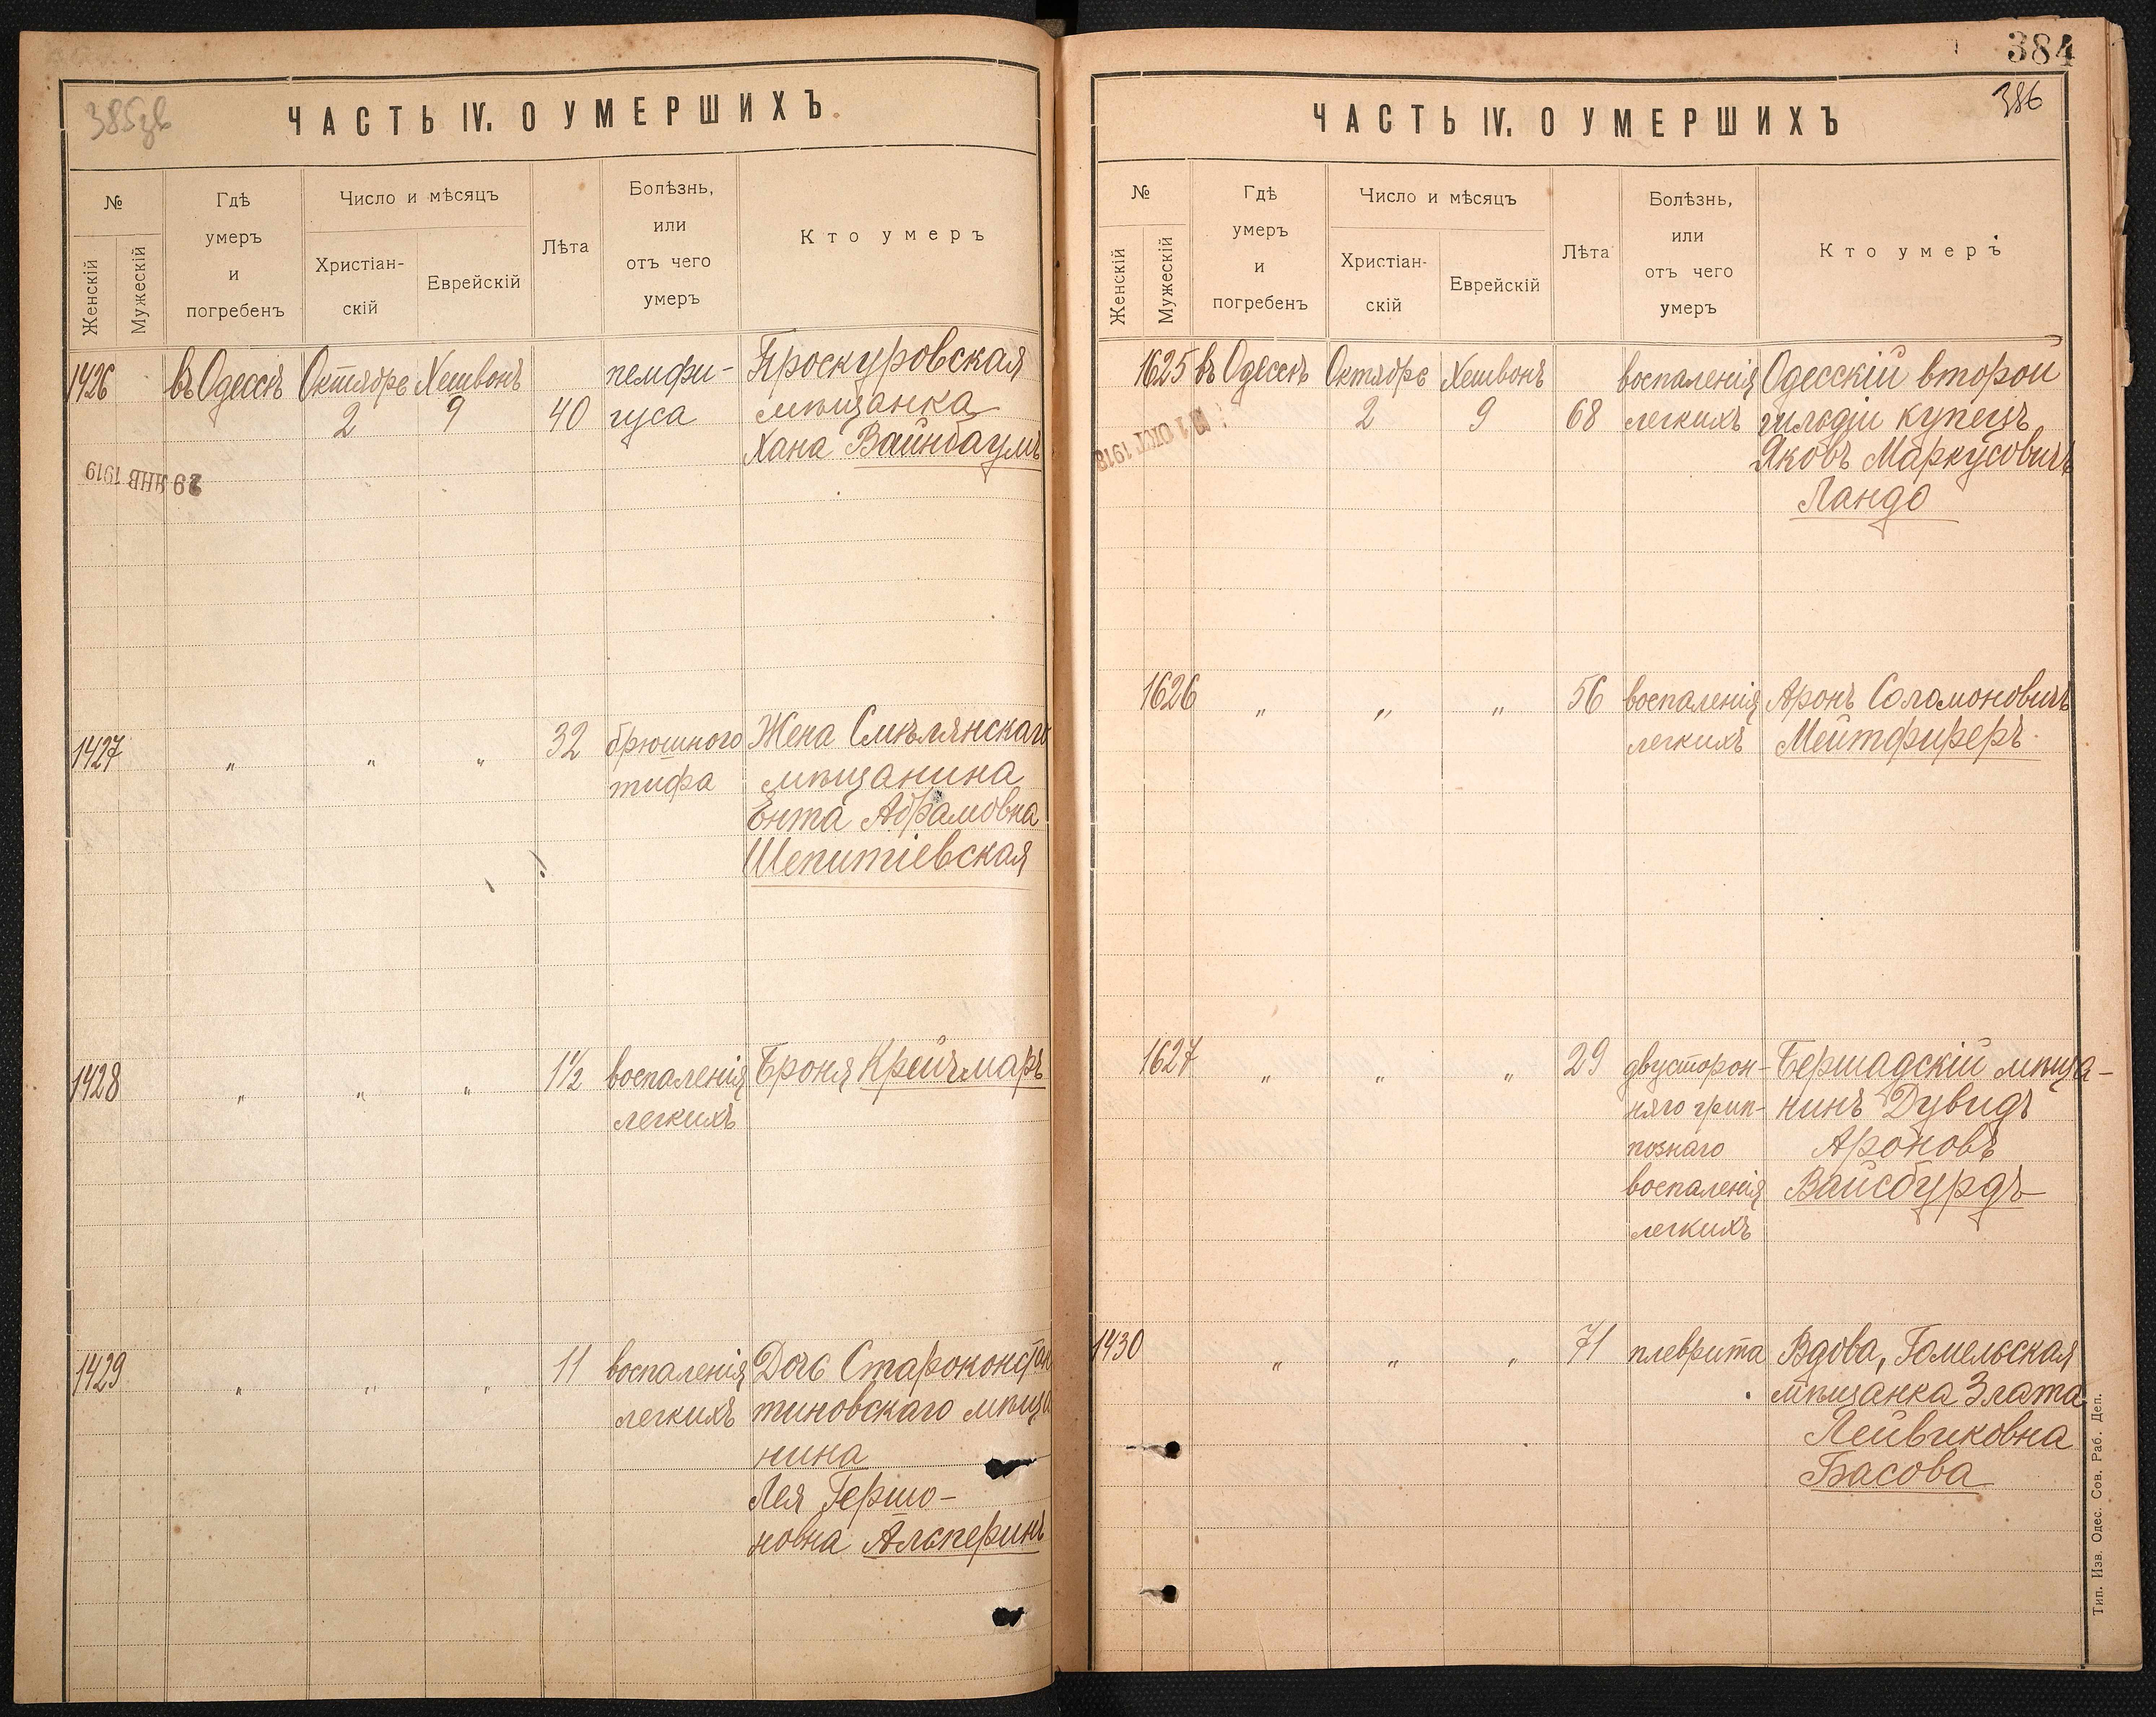 385зв
ЧАСТЬ IV. О УМЕРШИХЪ.
№
Женскій
Мужескій
Гдѣ
умеръ
и
погребенъ
Число и мѣсяцъ
Христіан-
скій
Еврейскій
Лѣта
Болѣзнь,
или
отъ чего
умеръ
Кто умеръ
1426 въ Одессѣ Октябрь Хешвонъ пемфи- Проскуровская
2 9 40 гуса мѣщанка
Хана Вайнбаумъ
29 ЯНВ 1919
1427 „ „ „ 32 брюшного Жена Смѣлянскаго
тифа мѣщанина
Ента Абрамовна
Шепитіевская
1428 „ „ „ 1½ воспаленія Броня Крейчмаръ
легкихъ
1429 „ „ „ 11 воспаленія Дочь Староконстан
легкихъ тиновскаго мѣща
нина
Лея Гершо-
новна Альперинъ
384
386
ЧАСТЬ IV. О УМЕРШИХЪ
№
Женскій
Мужескій
Гдѣ
умеръ
и
погребенъ
Число и мѣсяцъ
Христіан-
скій
Еврейскій
Лѣта
Болѣзнь,
или
отъ чего
умеръ
Кто умеръ
1625 въ Одессѣ Октябрь Хешвонъ воспаленія Одесскій второй
2 9 68 легкихъ гильдіи купецъ
Яковъ Маркусовичъ
Ландо
ОКТ 1918
1626 „ „ „ 56 воспаленія Аронъ Соломоновичъ
легкихъ Мейтфиреръ.
1627 „ „ „ 29 двусторон- Бершадскій мѣща-
няго грип- нинъ Дувидъ
познаго Ароновъ
воспаленія Вайсбурдъ
легкихъ
1430 „ „ „ 71 плеврита Вдова, Гомельская
мѣщанка Злата
Лейвиковна
Басова
Тип. Изв. Одес. Сов. Раб. Деп.